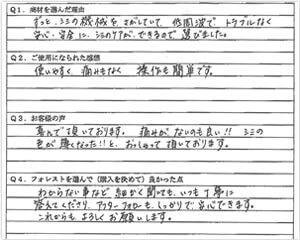 Q1. 商材を選んだ理由
ずっと、シミの機械をさがしていて、低周波で トラブルなく
安心・安全に、シミのケアができるので 選びました。
Q2. ご使用になられた感想
使いやすく 痛みもなく 操作も簡単です。
Q3. お客様の声
喜んで頂いております。 痛みがないのも良い!! シミの
色が薄くなった!! と、おっしゃって頂いております。
Q4. フォレストを選んで（購入を決めて）良かった点
わからない事など 細かく聞いても、いつも丁寧に
答えてくださり、アフターフォローもしっかりで安心できます。
これからも よろしくお願いします。